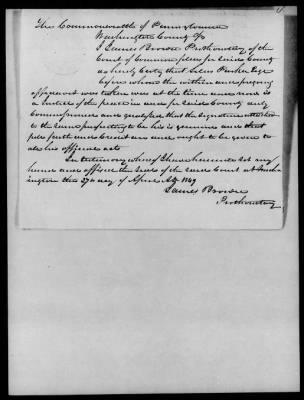 The Commonwealth of Pennsylvania
Washington County Ss
I James Brown Prothonotary of the
Court of Common pleas for said County
do hereby Certify that
before whom the within and foregoing
affidavit was taken was at the time and now is
a Justice of the peace in and for said County duly
Commissioned and qualified that the signature attached
to the same purporting to be his is genuine and that
full faith and credit are and ought to be given to
all his official acts
In testimony whereof I have hereunto set my
hand and affixed the seal of the said Court at Wash-
ington this 27 day of April AD 1849
James Brown
Prothonotary